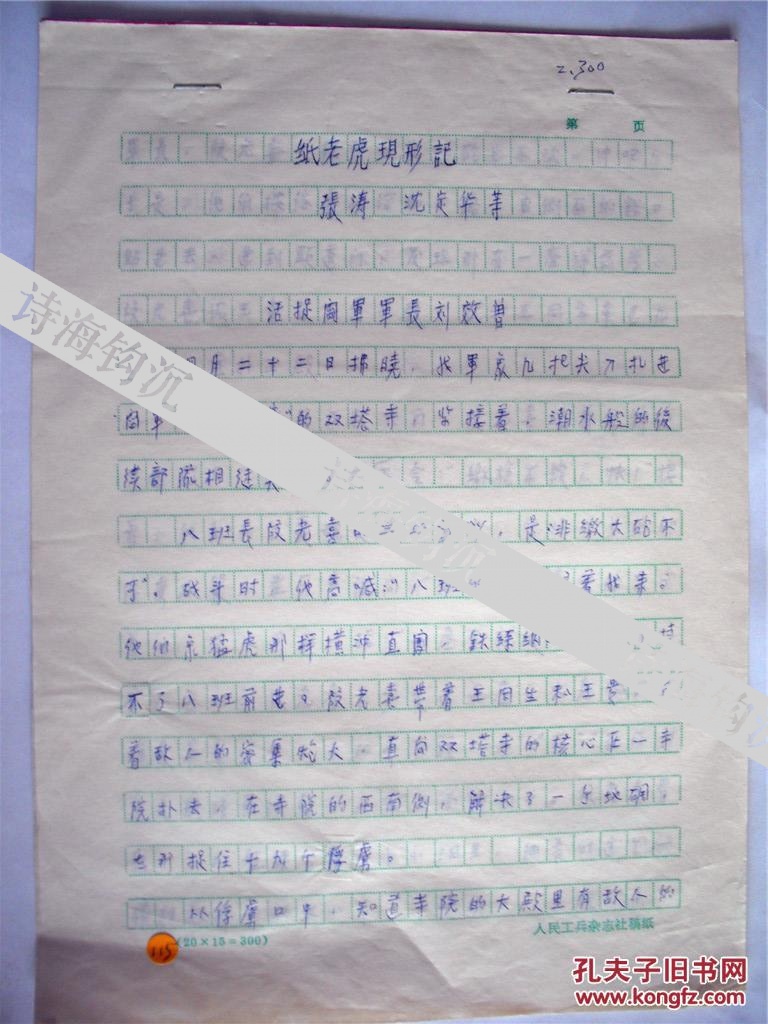 2,300
第 页
紙老虎現形記
張涛 沈定华等
活捉閻軍軍長刘效曾
四月二十二日拂曉，我軍象几把尖刀扎进
閻軍 的双塔寺，紧接着，潮水般的後
续部隊相继
八班長 老喜 ，是非繳大砲不
了。战斗时，他高喊：八班 着我来。
他们象猛虎那样横冲直闖，鉄絲網
不了八班前进。 老喜帶着王同生和王
着敌人的密集炮火，直向双塔寺的核心区—寺
院扑去，在寺院的西南侧，解决了一个地碉，
去那捉住十 个俘虜。
从俘虜口中，知道寺院的大殿里有敌人的
(20×15=300)
人民工兵杂志社稿纸
115
诗海钩沉
孔夫子旧书网
www.kongfz.com